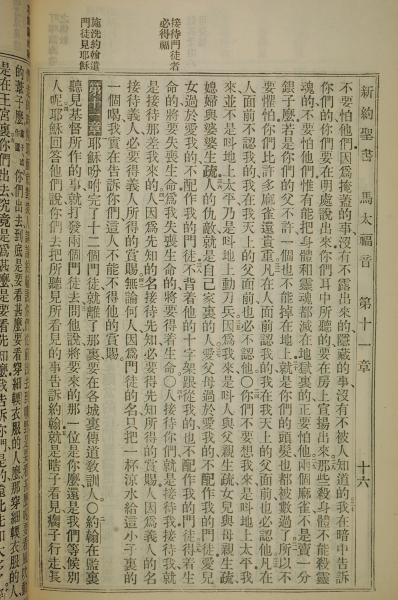 新約聖書 馬太福音 第十一章 十六
不要怕他們因爲掩蓋的事沒有不露出來的隱藏的事沒有不被人知道的我在暗中告訴
你們的你們要在明處說出來你們耳中所聽的要在房上宣揚出來那些殺身體不能殺靈
魂的不要怕他們惟有能把身體和靈魂都滅在地獄裏的正要怕他兩個麻雀不是賣一分
銀子麼若是你們的父不許一個也不能掉在地上就是你們的頭髮也都被數過了所以不
要懼怕你們比許多麻雀還貴重凡在人面前認我的我在我天上的父面前也必認他凡在
人面前不認我的我在我天上的父面前也必不認他○你們不要想我來是叫地上太平我
來並不是叫地上太平乃是叫地上動刀兵因爲我來是叫人與父親生疏女兒與母親生疏
媳婦與婆婆生疏人的仇敵就是自己家裏的人愛父母過於愛我的不配作我的門徒愛兒
女過於愛我的不配作我的門徒不背着他的十字架跟從我的也不配作我的門徒得着生
命的將要失喪生命爲我失喪生命的將要得着生命○人接待你們就是接待我接待我就
接待門徒者
必得福
是接待那差我來的人因爲先知的名接待先知必要得先知所得的賞賜人因爲義人的名
接待義人必要得義人所得的賞賜無論何人因爲門徒的名只把一杯涼水給這小子裏的
一個喝我實在告訴你們這人不能不得他的賞賜
施洗約翰遣
門徒見耶穌
第十一章耶穌吩咐完了十二個門徒就離了那裏要在各城裏傳道敎訓人○約翰在監裏
聽見基督所作的事就打發兩個門徒去問他說將要來的那一位是你麼還是我們等候別
人呢耶穌回答他們說你們去把所聽見所看見的事告訴約翰就是瞎子看見瘸子行走長
的葦子麼你們出去到底是要看甚麼要看穿細輭衣服的人麼那穿細輭衣服的人
是在王宮裏你們出去究竟是爲甚麼是要看先知麼我告訴你們是的